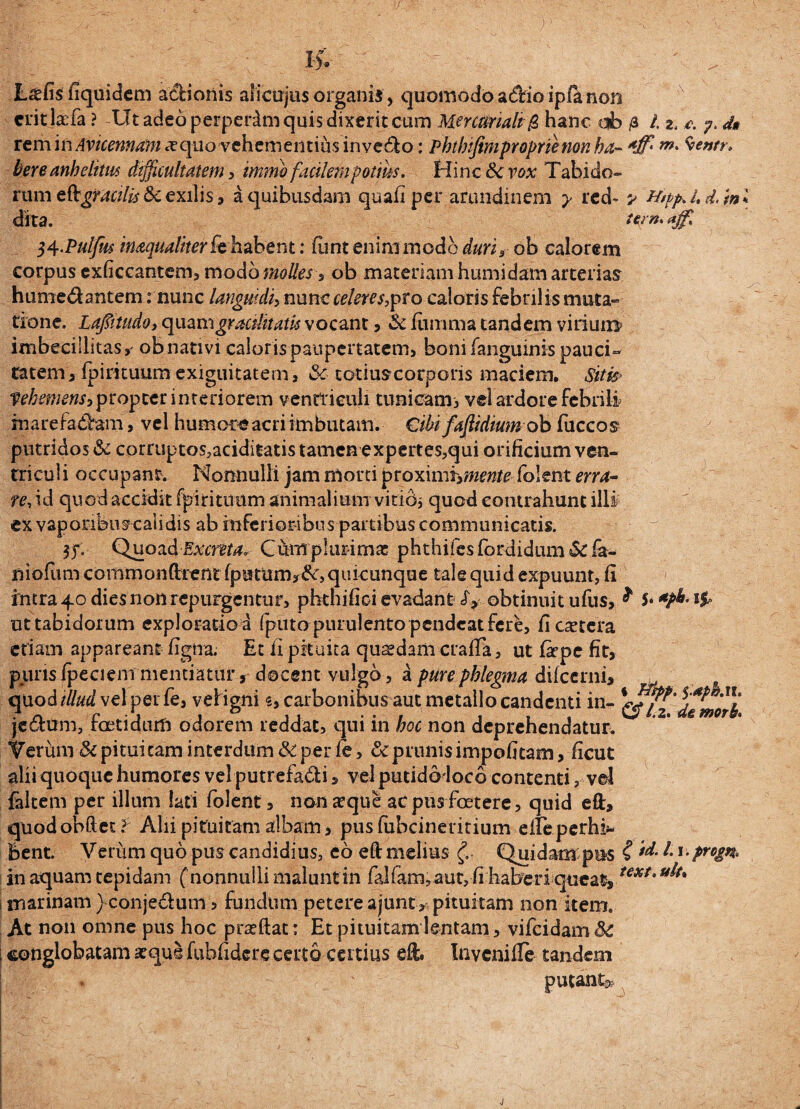 15.
Læsis siquidem actionis alicujus organis, quomodo actio ipsa non
erit læsa? Ut adeò perperàm quis dixerit cum Mercuriali β hanc ob β l. 2. c. 7. de
rem in Avicennam æquo vehementius invecto: Phthisim propriè non ha- aff. m. Ventr.
bere anhelitus difficultatem, immò facilem potiùs. Hinc & vox Tabido-
rum est gracilis & exilis, à quibusdam quasi per arundinem γ red- γ Hipp. l. d. in-
dita. tern. aff.
34. Pulsus inæqualiter se habent: sunt enim modò duri, ob calorem
corpus exsiccantem, modò molles, ob materiam humidam arterias
humectantem: nunc languidi, nunc celeres, pro caloris febrilis muta-
tione. Lassitudo, quam gracilitatis vocant, & summa tandem virium
imbecillitas, ob nativi caloris paupertatem, boni sanguinis pauci-
tatem, spirituum exiguitatem, & totius corporis maciem. Sitis
vehemens, propter interiorem ventriculi tunicam, vel ardore febrili
marefactam, vel humore acri imbutam. Cibi fastidium ob succos
putridos & corruptos, aciditatis tamen expertes, qui orificium ven-
triculi occupant. Nonnulli jam morti proximi, mente solent erra-
re, id quod accidit spirituum animalium vitiò, quod contrahunt illi
ex vaporibus calidis ab inferioribus partibus communicatis.
35. Quoad Excreta. Cùm plurimæ phthises sordidum & sa-
niosum commonstrent sputum, &, quicunque tale quid expuunt, si
intra 40 dies non repurgentur, phthisici evadant δ, obtinuit usus, δ 5. aph. 15.
ut tabidorum exploratio à sputo purulento pendeat ferè, si cætera
etiam appareant signa. Et si pituita quædam crassa, ut sæpe fit,
puris speciem mentiatur, docent vulgò, à pure phlegma discerni,
quod illud vel per se, vel igni ε, carbonibus aut metallo candenti in- ε Hipp. 5. aph. 11.
jectum, fœtidum odorem reddat, qui in hoc non deprehendatur. & l. 2. de morb.
Verùm & pituitam interdum & per se, & prunis impositam, sicut
alii quoque humores vel putrefacti, vel putido loco contenti, vel
saltem per illum lati solent, non æquè ac pus fœtere, quid est,
quod obstet? Alii pituitam albam, pus subcineritium esse perhi-
bent. Verùm quò pus candidius, eò est melius ζ. Quidam pus ζ id. l. 1. progn.
in aquam tepidam (nonnulli malunt in salsam, aut, si haberi queat, text. ult.
marinam) conjectum, fundum petere ajunt, pituitam non item.
At non omne pus hoc præstat: Et pituitam lentam, viscidam &
conglobatam æquè subsidere certò certius est. Invenisse tandem
putant,